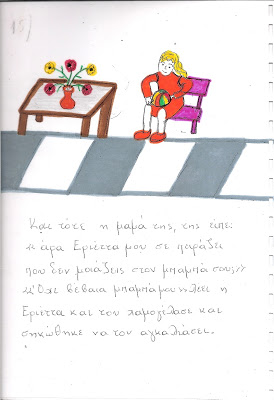 15)
Και τότε η μαμά της, της είπε:
«άρα Εριέττα μου σε πειράζει
που δεν μοιάζεις στον μπαμπά σου;»
«Όχι βέβαια μπαμπά μου» λέει η
Εριέττα και του χαμογέλασε και
σηκώθηκε να τον αγκαλιάσει.